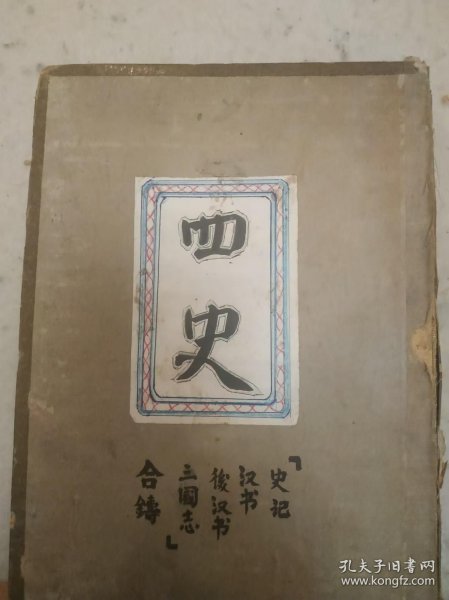 四史
『史记
汉书
後汉书
三國志』
合鑄
孔夫子旧书网
www.kongfz.com